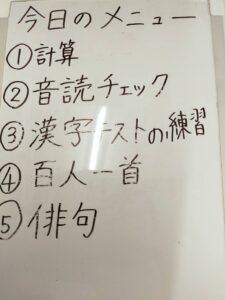 今日のメニュー
①計算
②音読チェック
③漢字テストの練習
④百人一首
⑤俳句